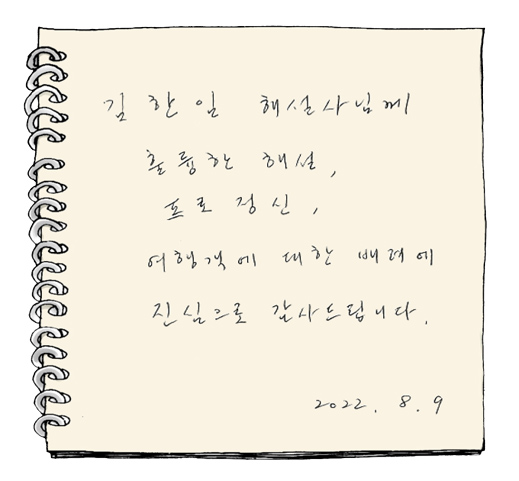 김한일 해설사님께
훌륭한 해설,
프로정신,
여행객에 대한 배려에
진심으로 감사드립니다.
2022. 8. 9